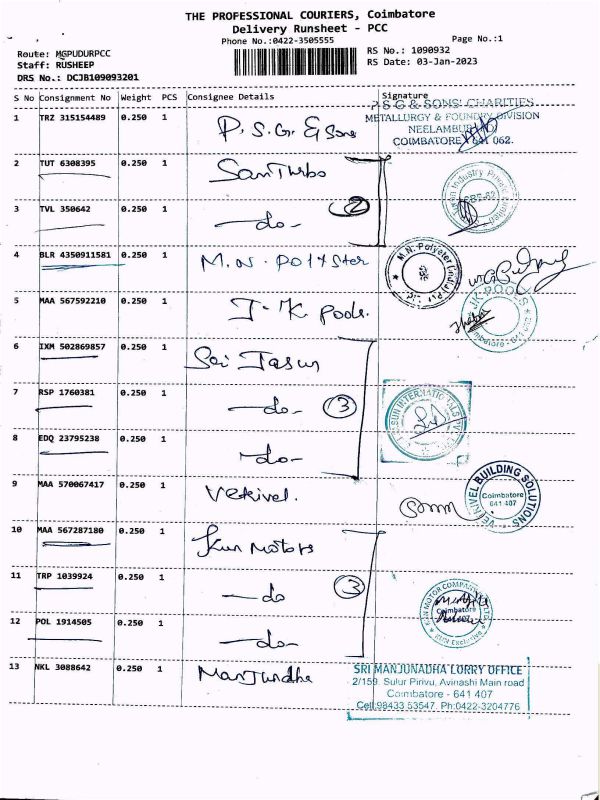 THE PROFESSIONAL COURIERS, Coimbatore
Delivery Runsheet - PCC
Phone No.:0422-3505555
Page No.:1
Route: MGPUDURPCC
Staff: RUSHEEP
DRS No.: DCJB109093201
RS No.: 1090932
RS Date: 03-Jan-2023
S No Consignment No Weight PCS Consignee Details Signature
1 TRZ 315154489 0.250 1 P.S.G. & Sons
P S G & SONS' CHARITIES
METALLURGY & FOUNDRY DIVISION
NEELAMBUR
COIMBATORE 641 062.
2 TUT 6308395 0.250 1 San Turbo
2
3 TVL 350642 0.250 1 —do—
4 BLR 4350911581 0.250 1 M.N. Polyster
M.N. Polyster
5 MAA 567592210 0.250 1 J.K. Pools.
JK POOLS
Coimbatore - 641
6 IXM 502869857 0.250 1 Sri Jasun
7 RSP 1760381 0.250 1 —do— 3
8 EDQ 23795238 0.250 1 —do—
9 MAA 570067417 0.250 1 Vetrivel.
VETRIVEL BUILDING SOLUTIONS
Coimbatore
641 407
10 MAA 567287180 0.250 1 Kun Motors
11 TRP 1039924 0.250 1 —do 3
12 POL 1914505 0.250 1 —do—
KUN MOTOR COMPANY
Coimbatore
KUN Exclusive
13 NKL 3088642 0.250 1 Manjundha
SRI MANJUNADHA LORRY OFFICE
2/159, Sulur Pirivu, Avinashi Main road
Coimbatore - 641 407
Cell:98433 53547, Ph:0422-3204776